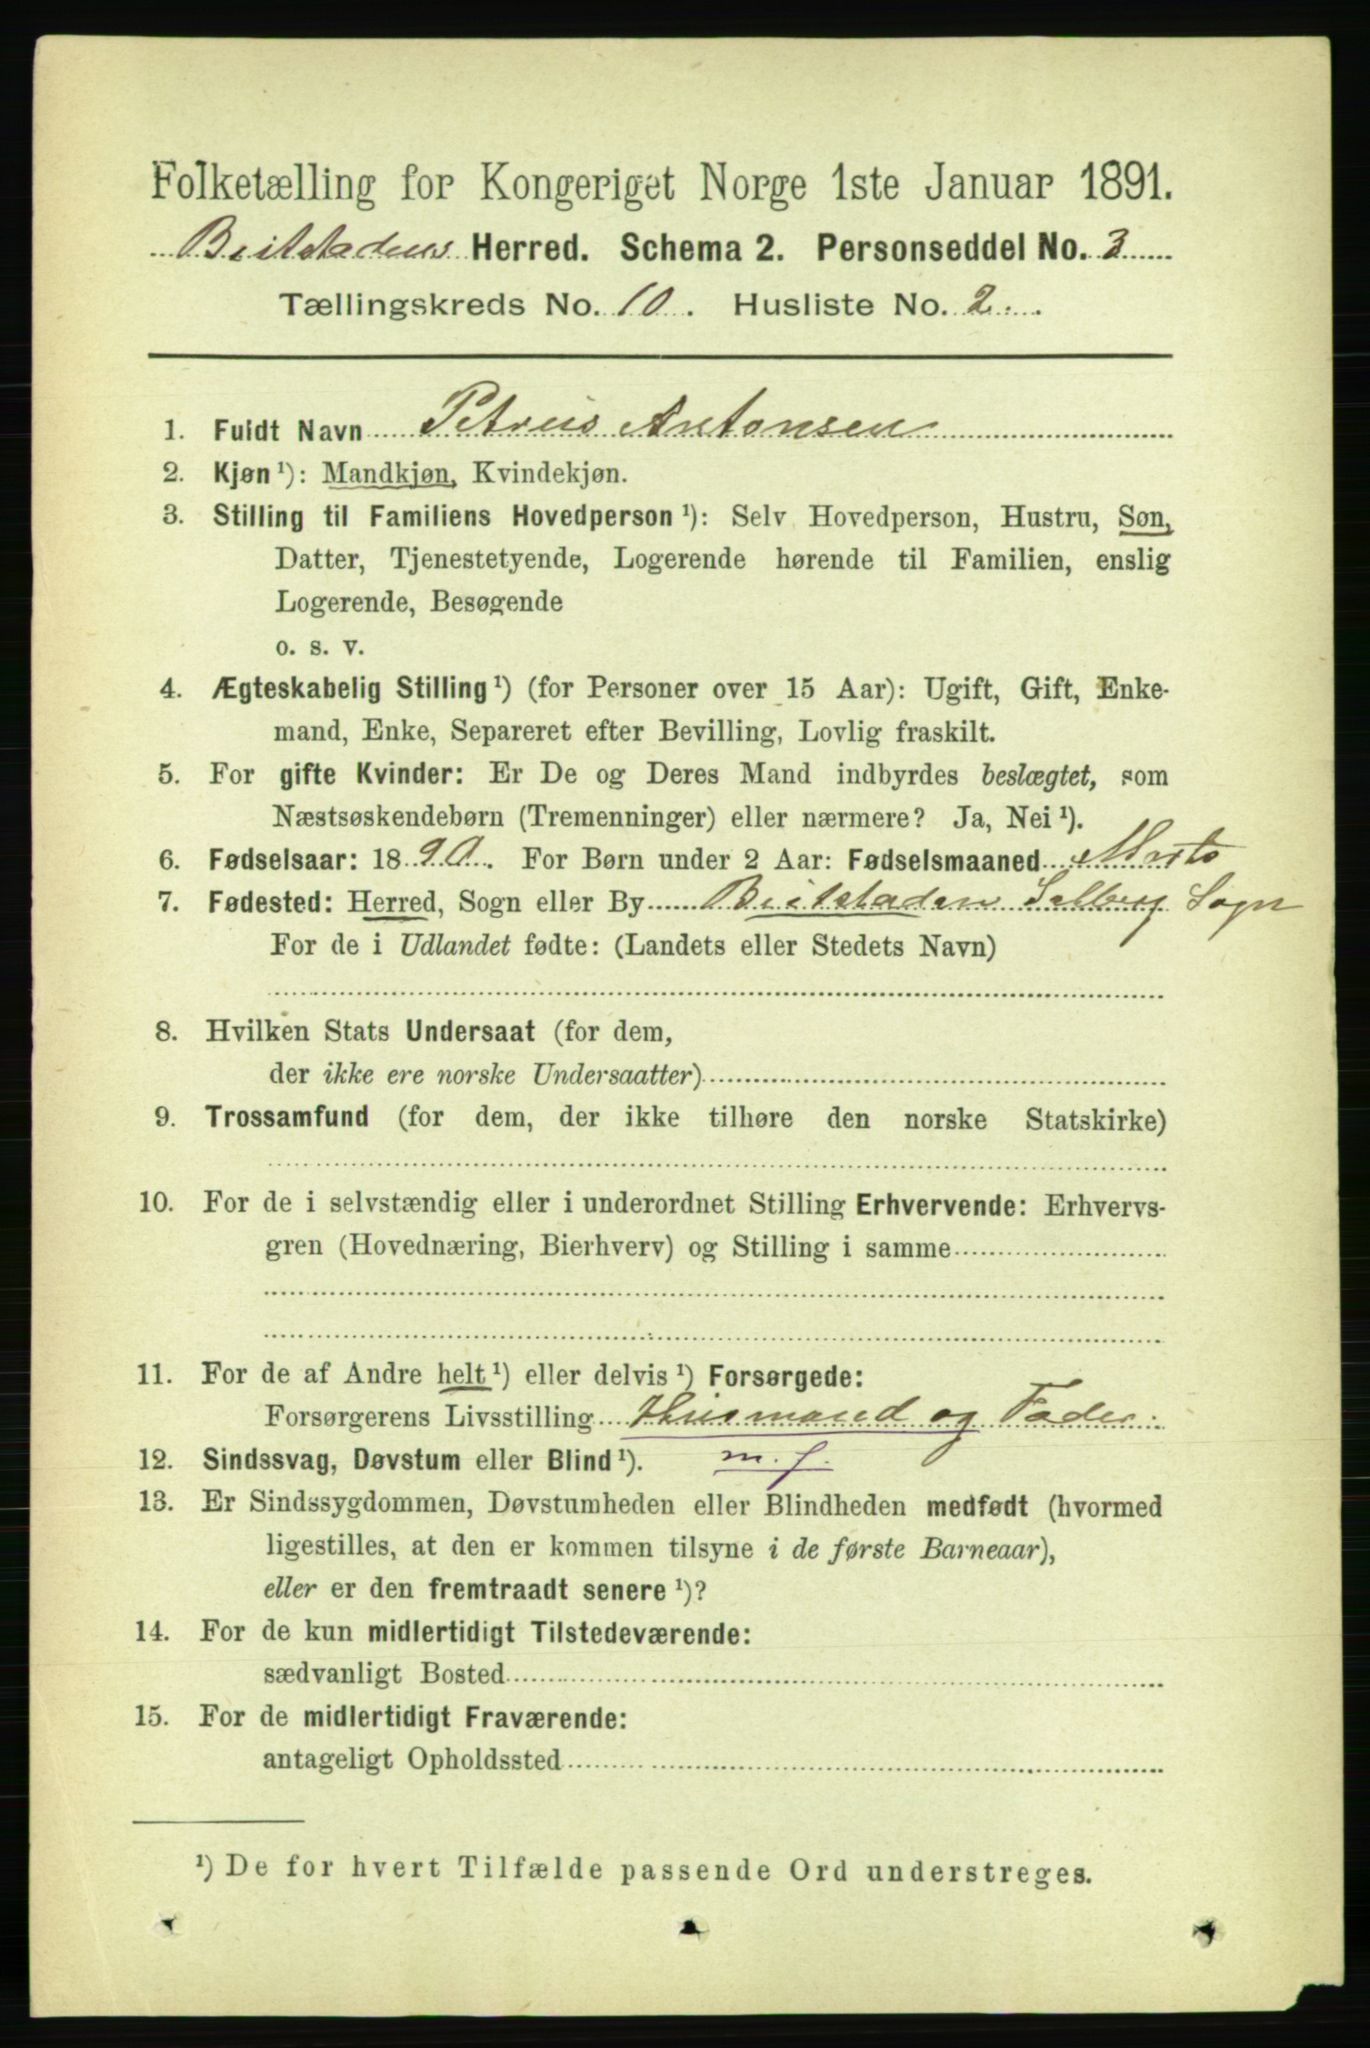 Folketælling for Kongeriget Norge 1ste Januar 1891.
Beitstadens Herred. Schema 2. Personseddel No. 3
Tællingskreds No. 10. Husliste No. 2.
1. Fuldt Navn Petrus Antonsen
2. Kjøn ¹): Mandkjøn, Kvindekjøn.
3. Stilling til Familiens Hovedperson ¹): Selv Hovedperson, Hustru, Søn,
Datter, Tjenestetyende, Logerende hørende til Familien, enslig
Logerende, Besøgende
o. s. v.
4. Ægteskabelig Stilling ¹) (for Personer over 15 Aar): Ugift, Gift, Enke-
mand, Enke, Separeret efter Bevilling, Lovlig fraskilt.
5. For gifte Kvinder: Er De og Deres Mand indbyrdes beslægtet, som
Næstsøskendebørn (Tremenninger) eller nærmere? Ja, Nei ¹).
6. Fødselsaar: 1890. For Børn under 2 Aar: Fødselsmaaned Marts
7. Fødested: Herred, Sogn eller By Beitstaden Solberg Sogn
For de i Udlandet fødte: (Landets eller Stedets Navn)
8. Hvilken Stats Undersaat (for dem,
der ikke ere norske Undersaatter)
9. Trossamfund (for dem, der ikke tilhøre den norske Statskirke)
10. For de i selvstændig eller i underordnet Stilling Erhvervende: Erhvervs-
gren (Hovednæring, Bierhverv) og Stilling i samme
11. For de af Andre helt ¹) eller delvis ¹) Forsørgede:
Forsørgerens Livsstilling Husmand og Fader.
12. Sindssvag, Døvstum eller Blind ¹). m. f.
13. Er Sindssygdommen, Døvstumheden eller Blindheden medfødt (hvormed
ligestilles, at den er kommen tilsyne i de første Barneaar),
eller er den fremtraadt senere ¹)?
14. For de kun midlertidigt Tilstedeværende:
sædvanligt Bosted
15. For de midlertidigt Fraværende:
antageligt Opholdssted
¹) De for hvert Tilfælde passende Ord understreges.